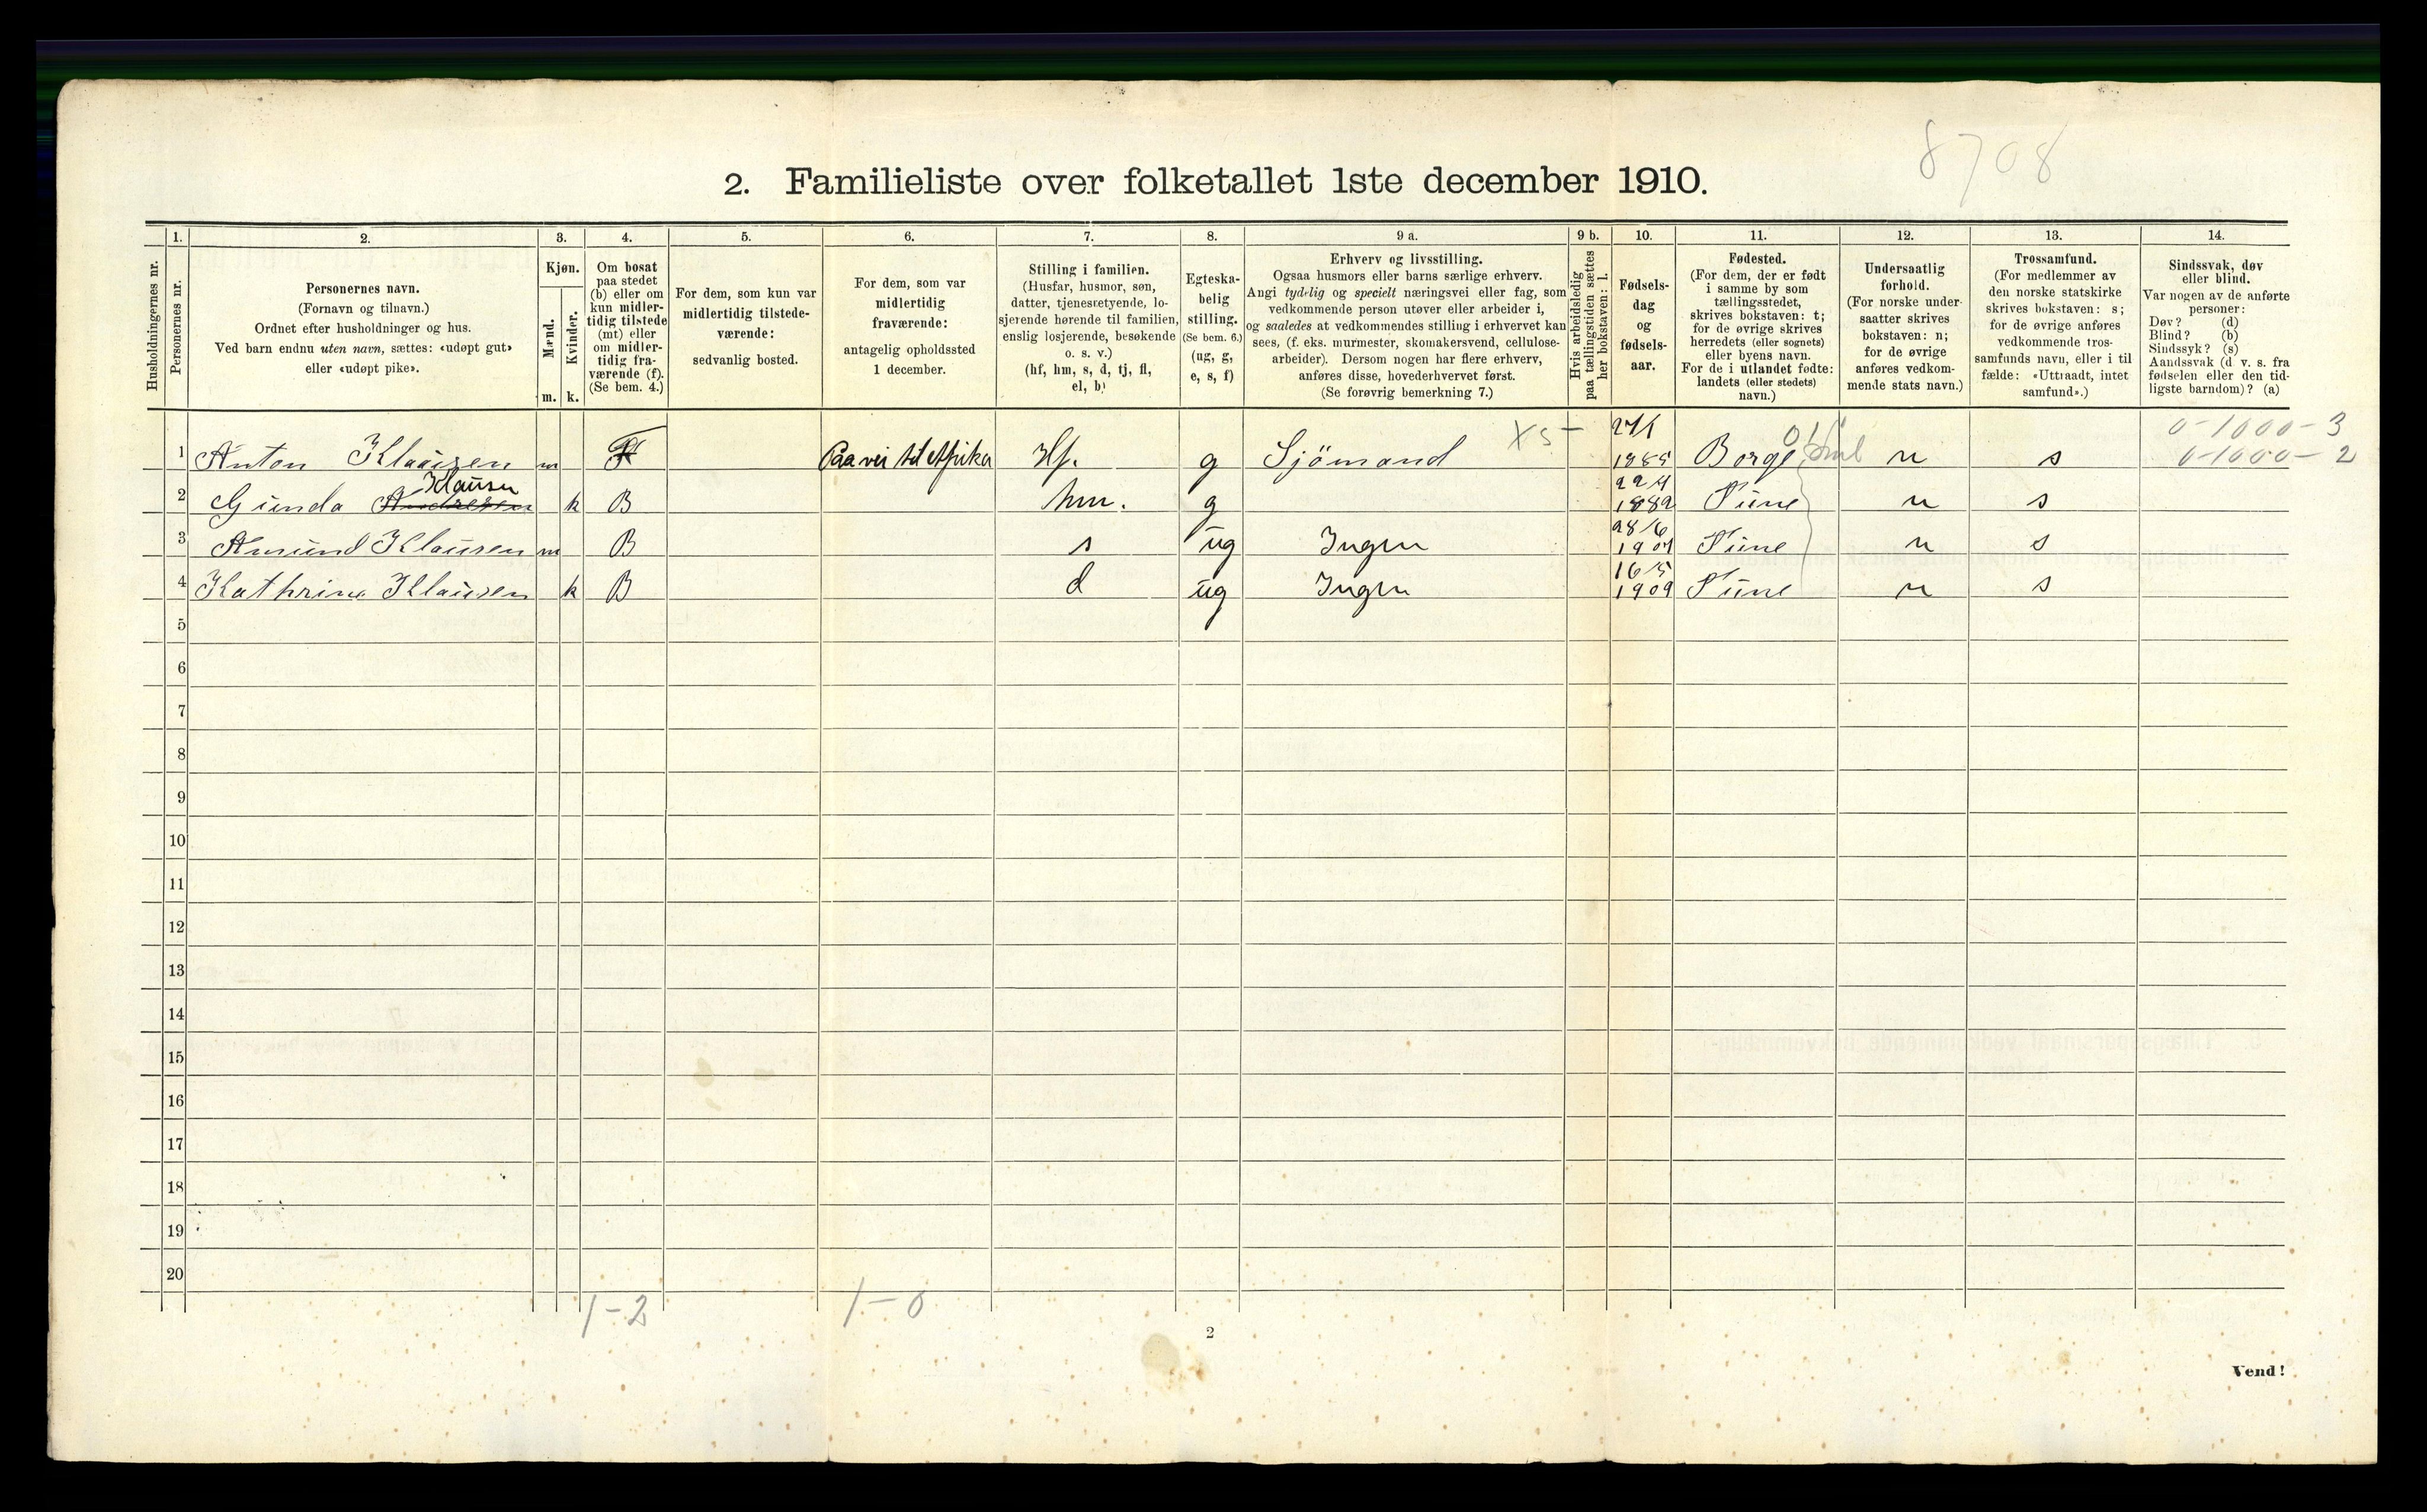 8708
2. Familieliste over folketallet 1ste december 1910.
Husholdningernes nr.
1.
Personernes nr.
2.
Personernes navn.
(Fornavn og tilnavn.)
Ordnet efter husholdninger og hus.
Ved barn endnu uten navn, sættes: «udøpt gut»
eller «udøpt pike».
3.
Kjøn.
Mænd.
Kvinder.
m. k.
4.
Om bosat
paa stedet
(b) eller om
kun midler-
tidig tilstede
(mt) eller
om midler-
tidig fra-
værende (f).
(Se bem. 4.)
5.
For dem, som kun var
midlertidig tilstede-
værende:
sedvanlig bosted.
6.
For dem, som var
midlertidig
fraværende:
antagelig opholdssted
1 december.
7.
Stilling i familien.
(Husfar, husmor, søn,
datter, tjenestetyende, lo-
sjerende hørende til familien,
enslig losjerende, besøkende
o. s. v.)
(hf, hm, s, d, tj, fl,
el, b)
8.
Egteska-
belig
stilling.
(Se bem. 6.)
(ug, g,
e, s, f)
9 a.
Erhverv og livsstilling.
Ogsaa husmors eller barns særlige erhverv.
Angi tydelig og specielt næringsvei eller fag, som
vedkommende person utøver eller arbeider i,
og saaledes at vedkommendes stilling i erhvervet kan
sees, (f. eks. murmester, skomakersvend, cellulose-
arbeider). Dersom nogen har flere erhverv,
anføres disse, hovederhvervet først.
(Se forøvrig bemerkning 7.)
9 b.
Hvis arbeidsledig
paa tællingstiden sættes
her bokstaven: l.
10.
Fødsels-
dag
og
fødsels-
aar.
11.
Fødested.
(For dem, der er født
i samme by som
tællingsstedet,
skrives bokstaven: t;
for de øvrige skrives
herredets (eller sognets)
eller byens navn.
For de i utlandet fødte:
landets (eller stedets)
navn.)
12.
Undersaatlig
forhold.
(For norske under-
saatter skrives
bokstaven: n;
for de øvrige
anføres vedkom-
mende stats navn.)
13.
Trossamfund.
(For medlemmer av
den norske statskirke
skrives bokstaven: s;
for de øvrige anføres
vedkommende tros-
samfunds navn, eller i til
fælde: «Uttraadt, intet
samfund».)
14.
Sindssvak, døv
eller blind.
Var nogen av de anførte
personer:
Døv? (d)
Blind? (b)
Sindssyk? (s)
Aandssvak (d. v. s. fra
fødselen eller den tid-
ligste barndom)? (a)
0-1000-3
1 Anton Klausen m F Paa vei til Afrika Hf. g Sjömand X5- 27/1 1885 Borge n s 0-1000-2
Klausen
2 Gunda k B hm. g 1882 Tune n s
3 Amund Klausen m B s ug Ingen 28/6 1907 Tune n s
4 Kathrine Klausen k B d ug Ingen 16/5 1909 Tune n s
5
6
7
8
9
10
11
12
13
14
15
16
17
18
19
20
1-2 1-0
2
Vend!